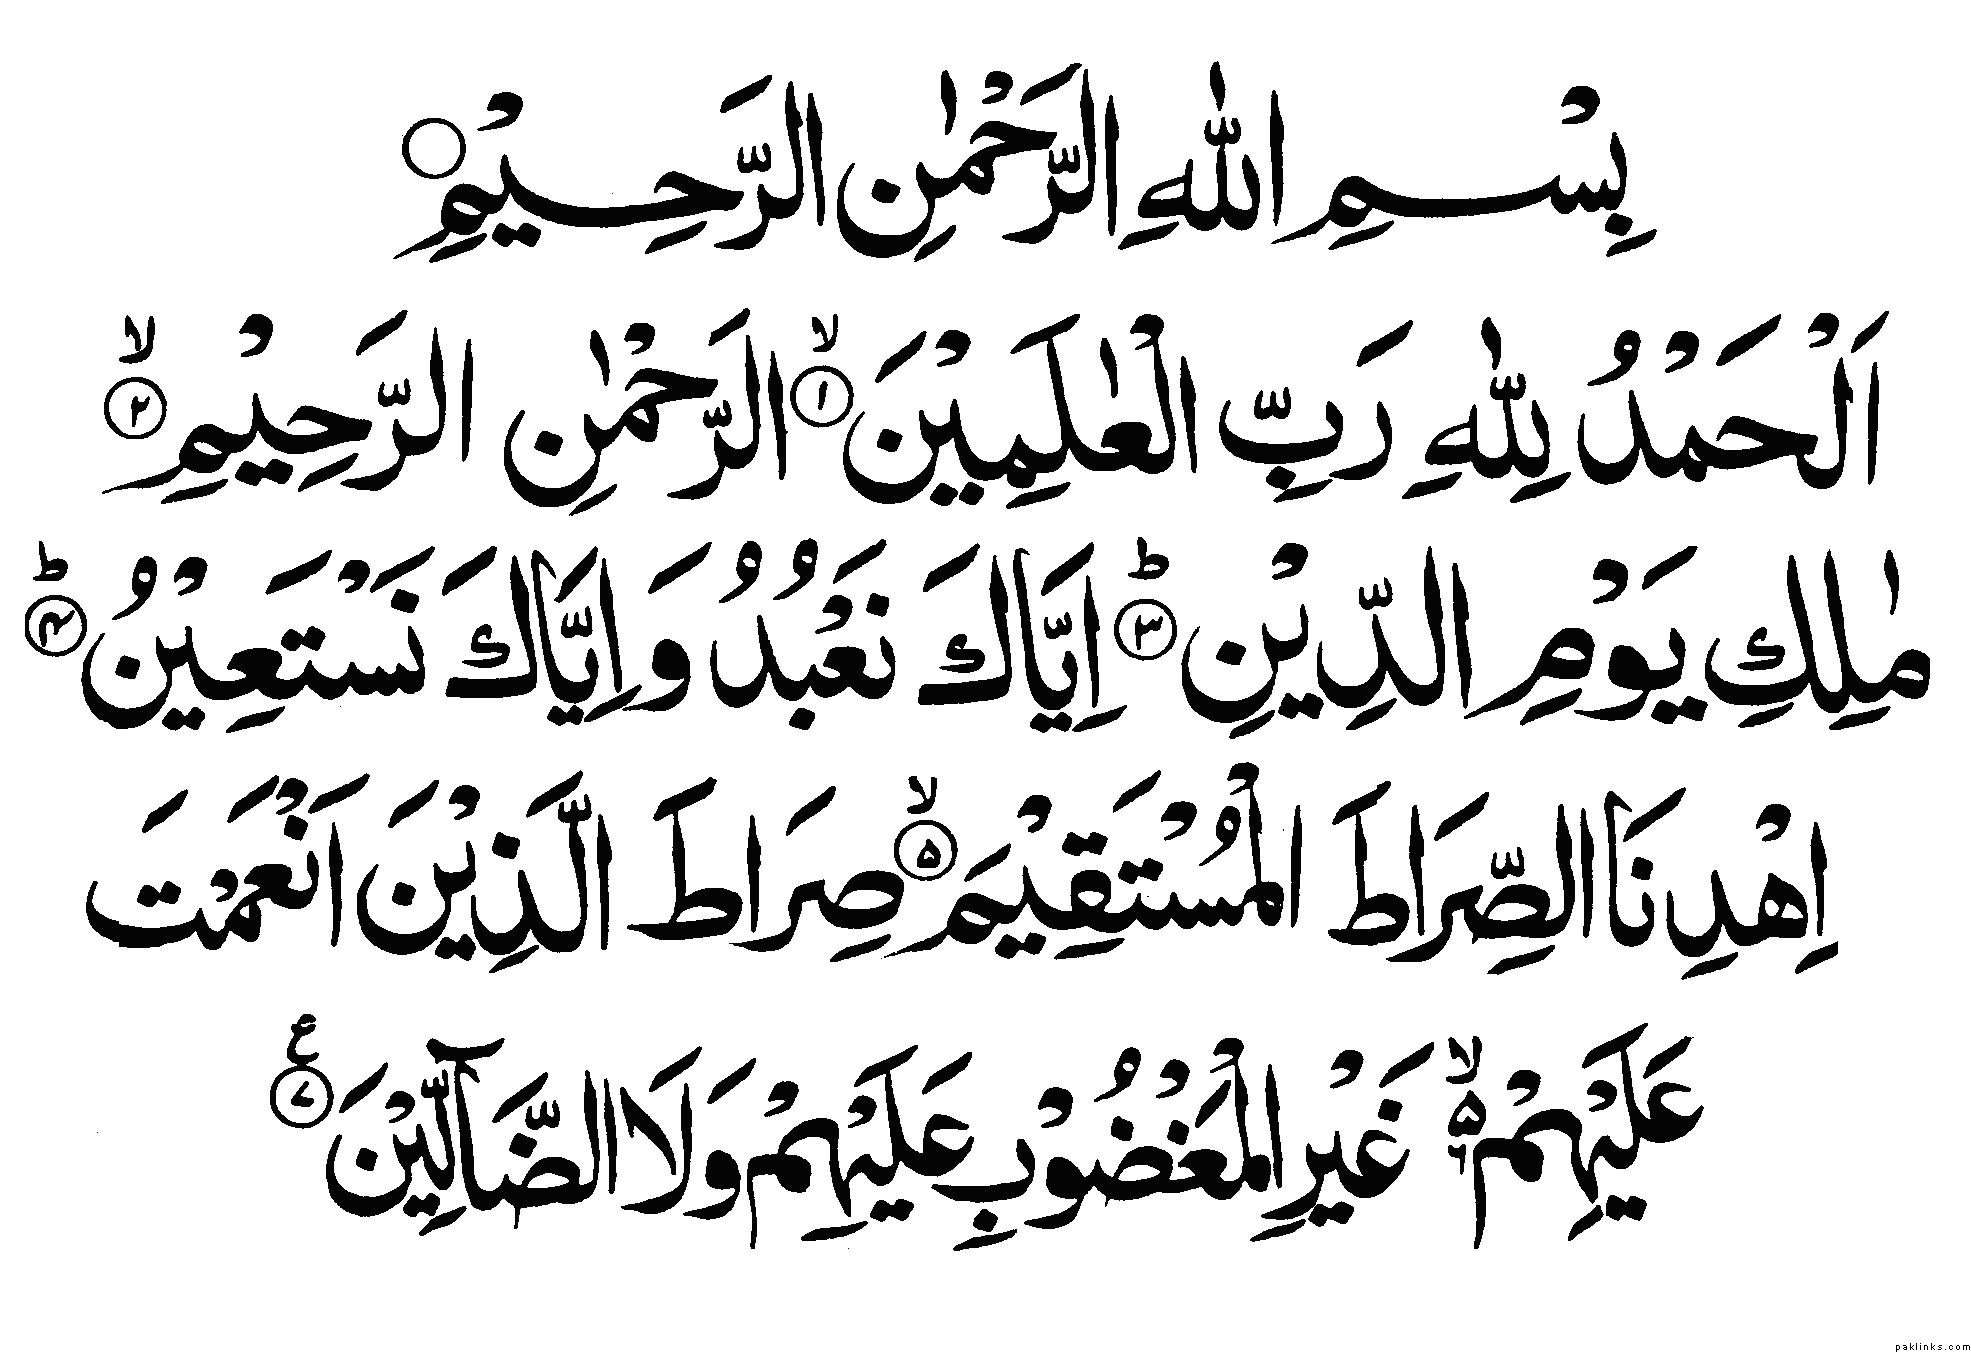 بِسْمِ اللّٰهِ الرَّحْمٰنِ الرَّحِيْمِ ○
اَلْحَمْدُ لِلّٰهِ رَبِّ الْعٰلَمِيْنَ ۙ﴿۱﴾ الرَّحْمٰنِ الرَّحِيْمِ ۙ﴿۲﴾
مٰلِكِ يَوْمِ الدِّيْنِ ؕ﴿۳﴾ اِيَّاكَ نَعْبُدُ وَاِيَّاكَ نَسْتَعِيْنُ ؕ﴿۴﴾
اِهْدِنَا الصِّرَاطَ الْمُسْتَقِيْمَ ۙ﴿۵﴾ صِرَاطَ الَّذِيْنَ اَنْعَمْتَ
عَلَيْهِمْ ۙ۵۶ غَيْرِ الْمَغْضُوْبِ عَلَيْهِمْ وَلَا الضَّآلِّيْنَ ﴿۷﴾ ع
paklinks.com